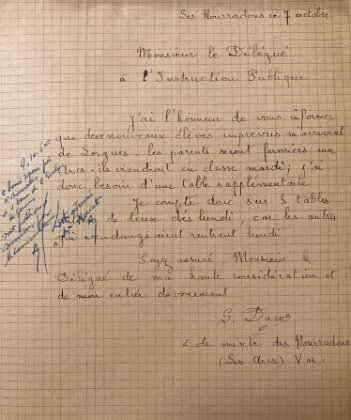 Les Nourradons ce 7 octobre
Monsieur le Délégué
à l'Instruction Publique
J'ai l'honneur de vous informer
que deux nouveaux élèves imprévus m'arrivent
de Lorgues - les parents seront fermiers aux
Arcs - ils viendront en classe mardi; j'ai
donc besoin d'une table supplémentaire
Je compte donc sur 3 tables
de deux dès lundi, car les autres
qui vendangeaient rentrent lundi
Soyez assuré Monsieur le
Délégué de ma haute considération et
de mon entier dévouement
G. Ducos
école mixte des Nourradons
(Les Arcs) Var.